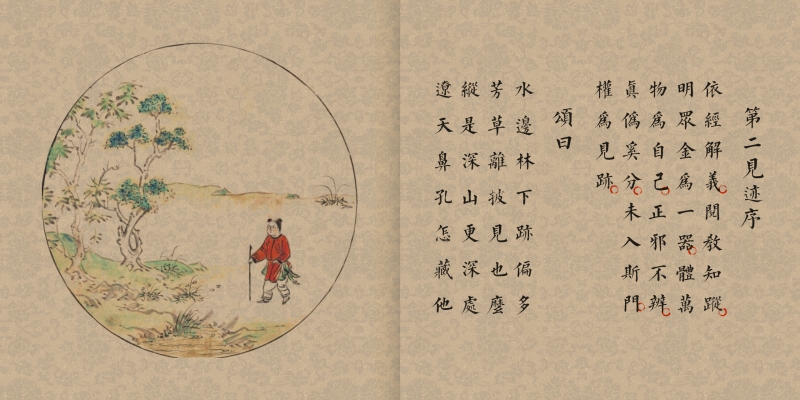 第二見迹序
依經解義閱教知蹤
明眾金為一器體萬
物為自己正邪不辨
真偽奚分未入斯門
權為見跡
頌曰
水邊林下跡偏多
芳草離披見也麼
縱是深山更深處
遼天鼻孔怎藏他